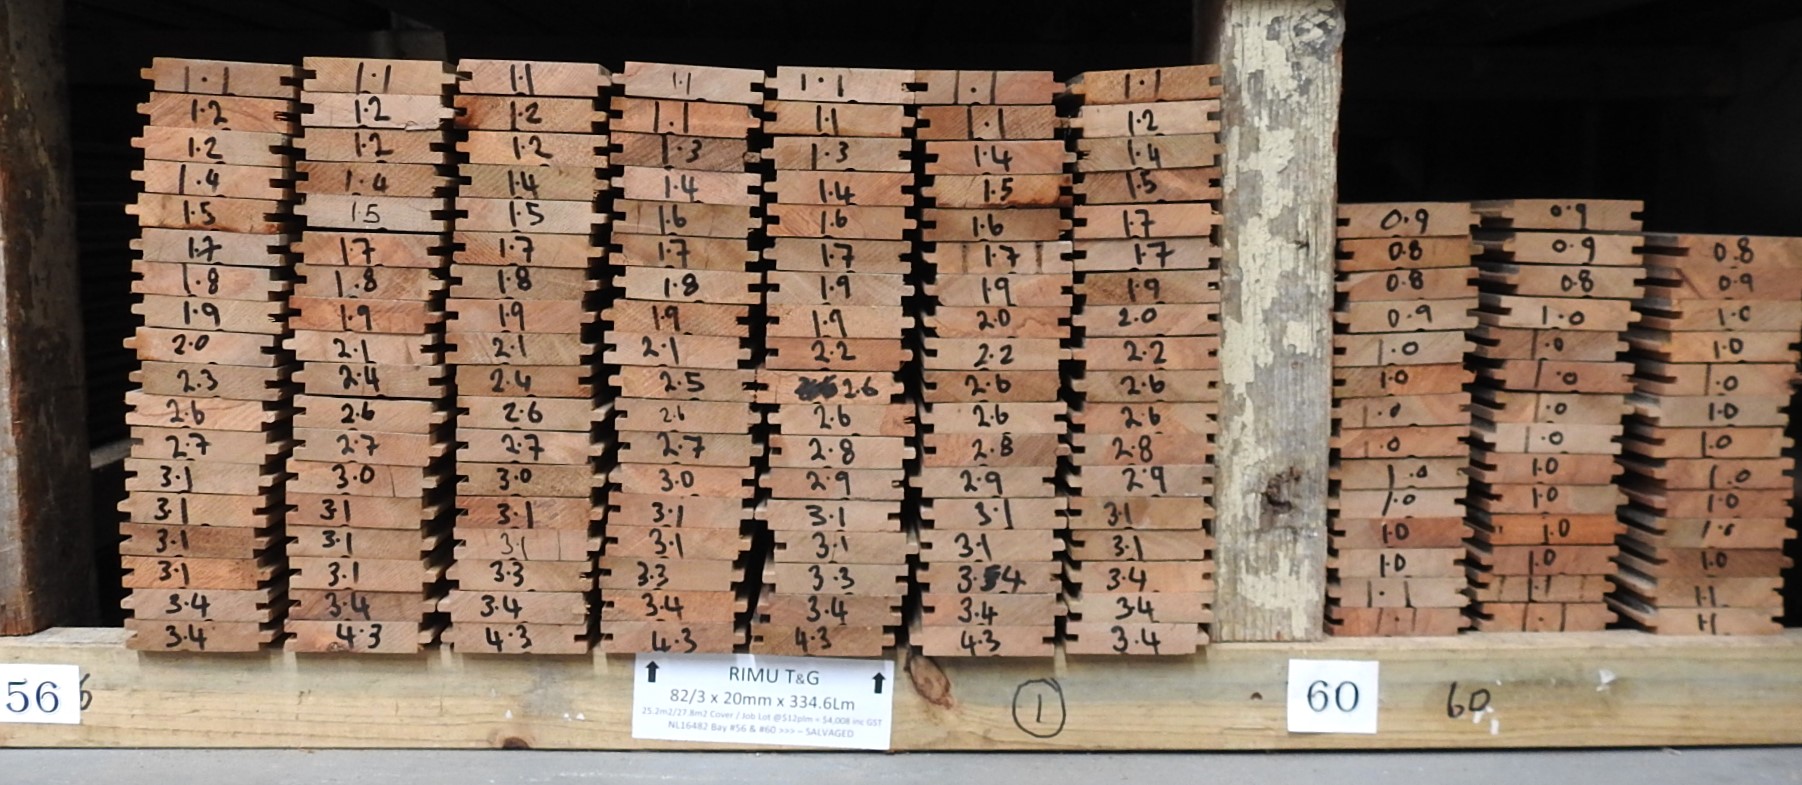 1.1 1.1 1.1 1.1 1.1 1.1 1.1
1.2 1.2 1.2 1.1 1.1 1.1 1.2
1.2 1.2 1.2 1.3 1.3 1.4 1.4
1.4 1.4 1.4 1.4 1.4 1.5 1.5
1.5 1.5 1.5 1.6 1.6 1.6 1.7
1.7 1.7 1.7 1.7 1.7 1.7 1.7
1.8 1.8 1.8 1.8 1.9 1.9 1.9
1.9 1.9 1.9 1.9 1.9 2.0 2.0
2.0 2.1 2.1 2.1 2.2 2.2 2.2
2.3 2.4 2.4 2.5 2.6 2.6 2.6
2.6 2.6 2.6 2.6 2.6 2.6 2.6
2.7 2.7 2.7 2.7 2.8 2.8 2.8
3.1 3.0 3.0 3.0 2.9 2.9 2.9
3.1 3.1 3.1 3.1 3.1 3.1 3.1
3.1 3.1 3.1 3.1 3.1 3.1 3.1
3.1 3.1 3.3 3.3 3.3 3.4 3.4
3.4 3.4 3.4 3.4 3.4 3.4 3.4
3.4 4.3 4.3 4.3 4.3 4.3 3.4
0.9 0.9
0.8 0.9 0.8
0.8 0.8 0.9
0.9 1.0 1.0
1.0 1.0 1.0
1.0 1.0 1.0
1.0 1.0 1.0
1.0 1.0 1.0
1.0 1.0 1.0
1.0 1.0 1.0
1.0 1.0
1.0 1.0 1.0
1.1 1.1 1.1
1.1 1.1 1.1
56
RIMU T&G
82/3 x 20mm x 334.6Lm
25.2m2/27.8m2 Cover / Job Lot @$12plm = $4,008 inc GST
NL16482 Bay #56 & #60 >>> ~ SALVAGED
1
60 60